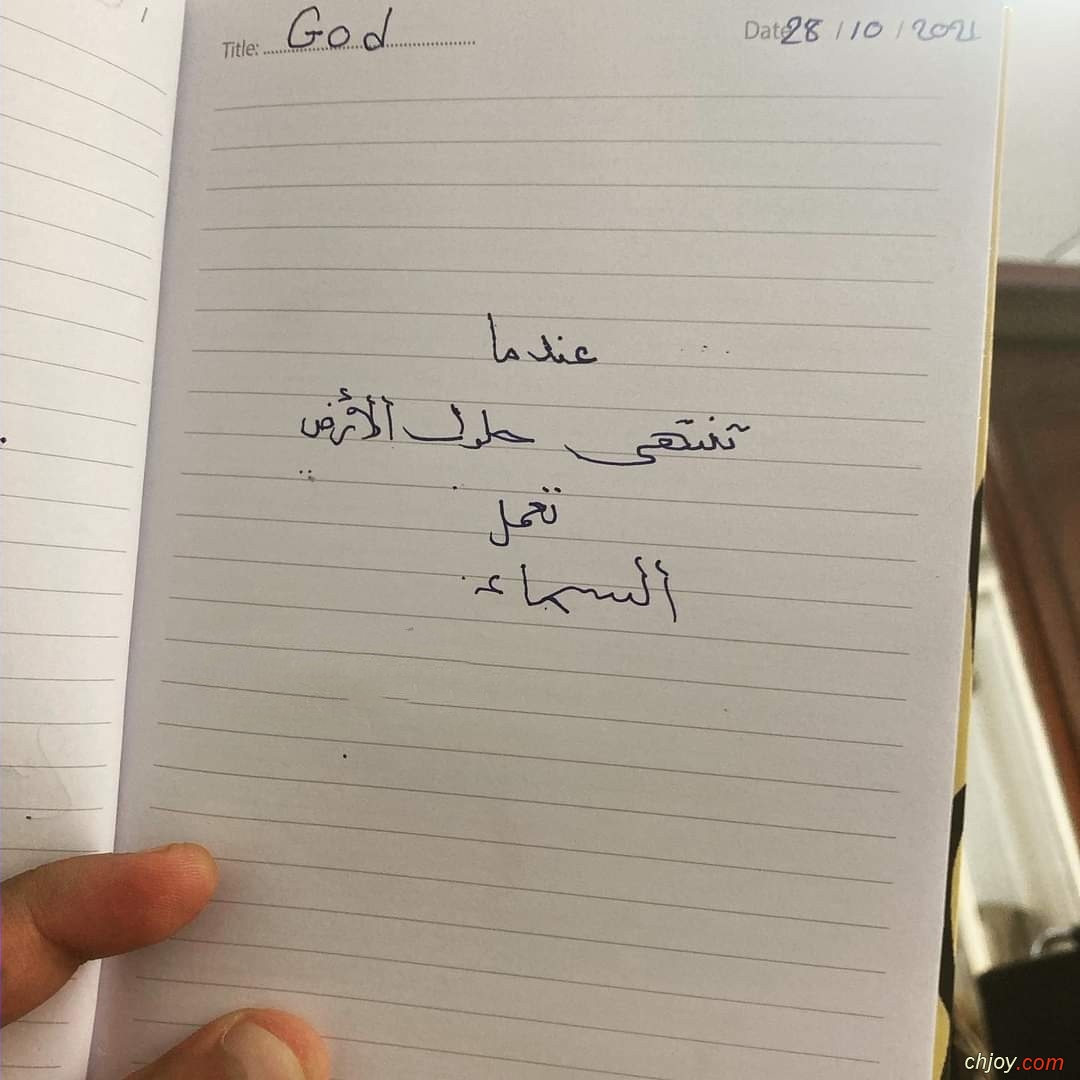 Title: God Date 28 / 10 / 2021
عندما
تنتهي حلول الأرض
تعمل
السماء
chjoy.com